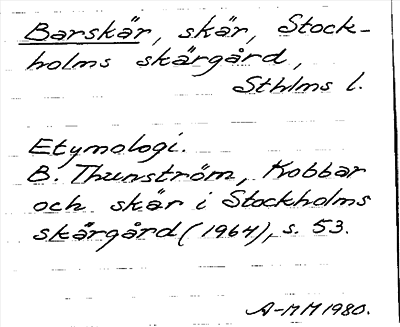 Barskär, skär, Stock-
holms skärgård,
Sthlms l.
Etymologi.
B. Thunström, Kobbar
och skär i Stockholms
skärgård (1964), s. 53.
A-MM 1980.